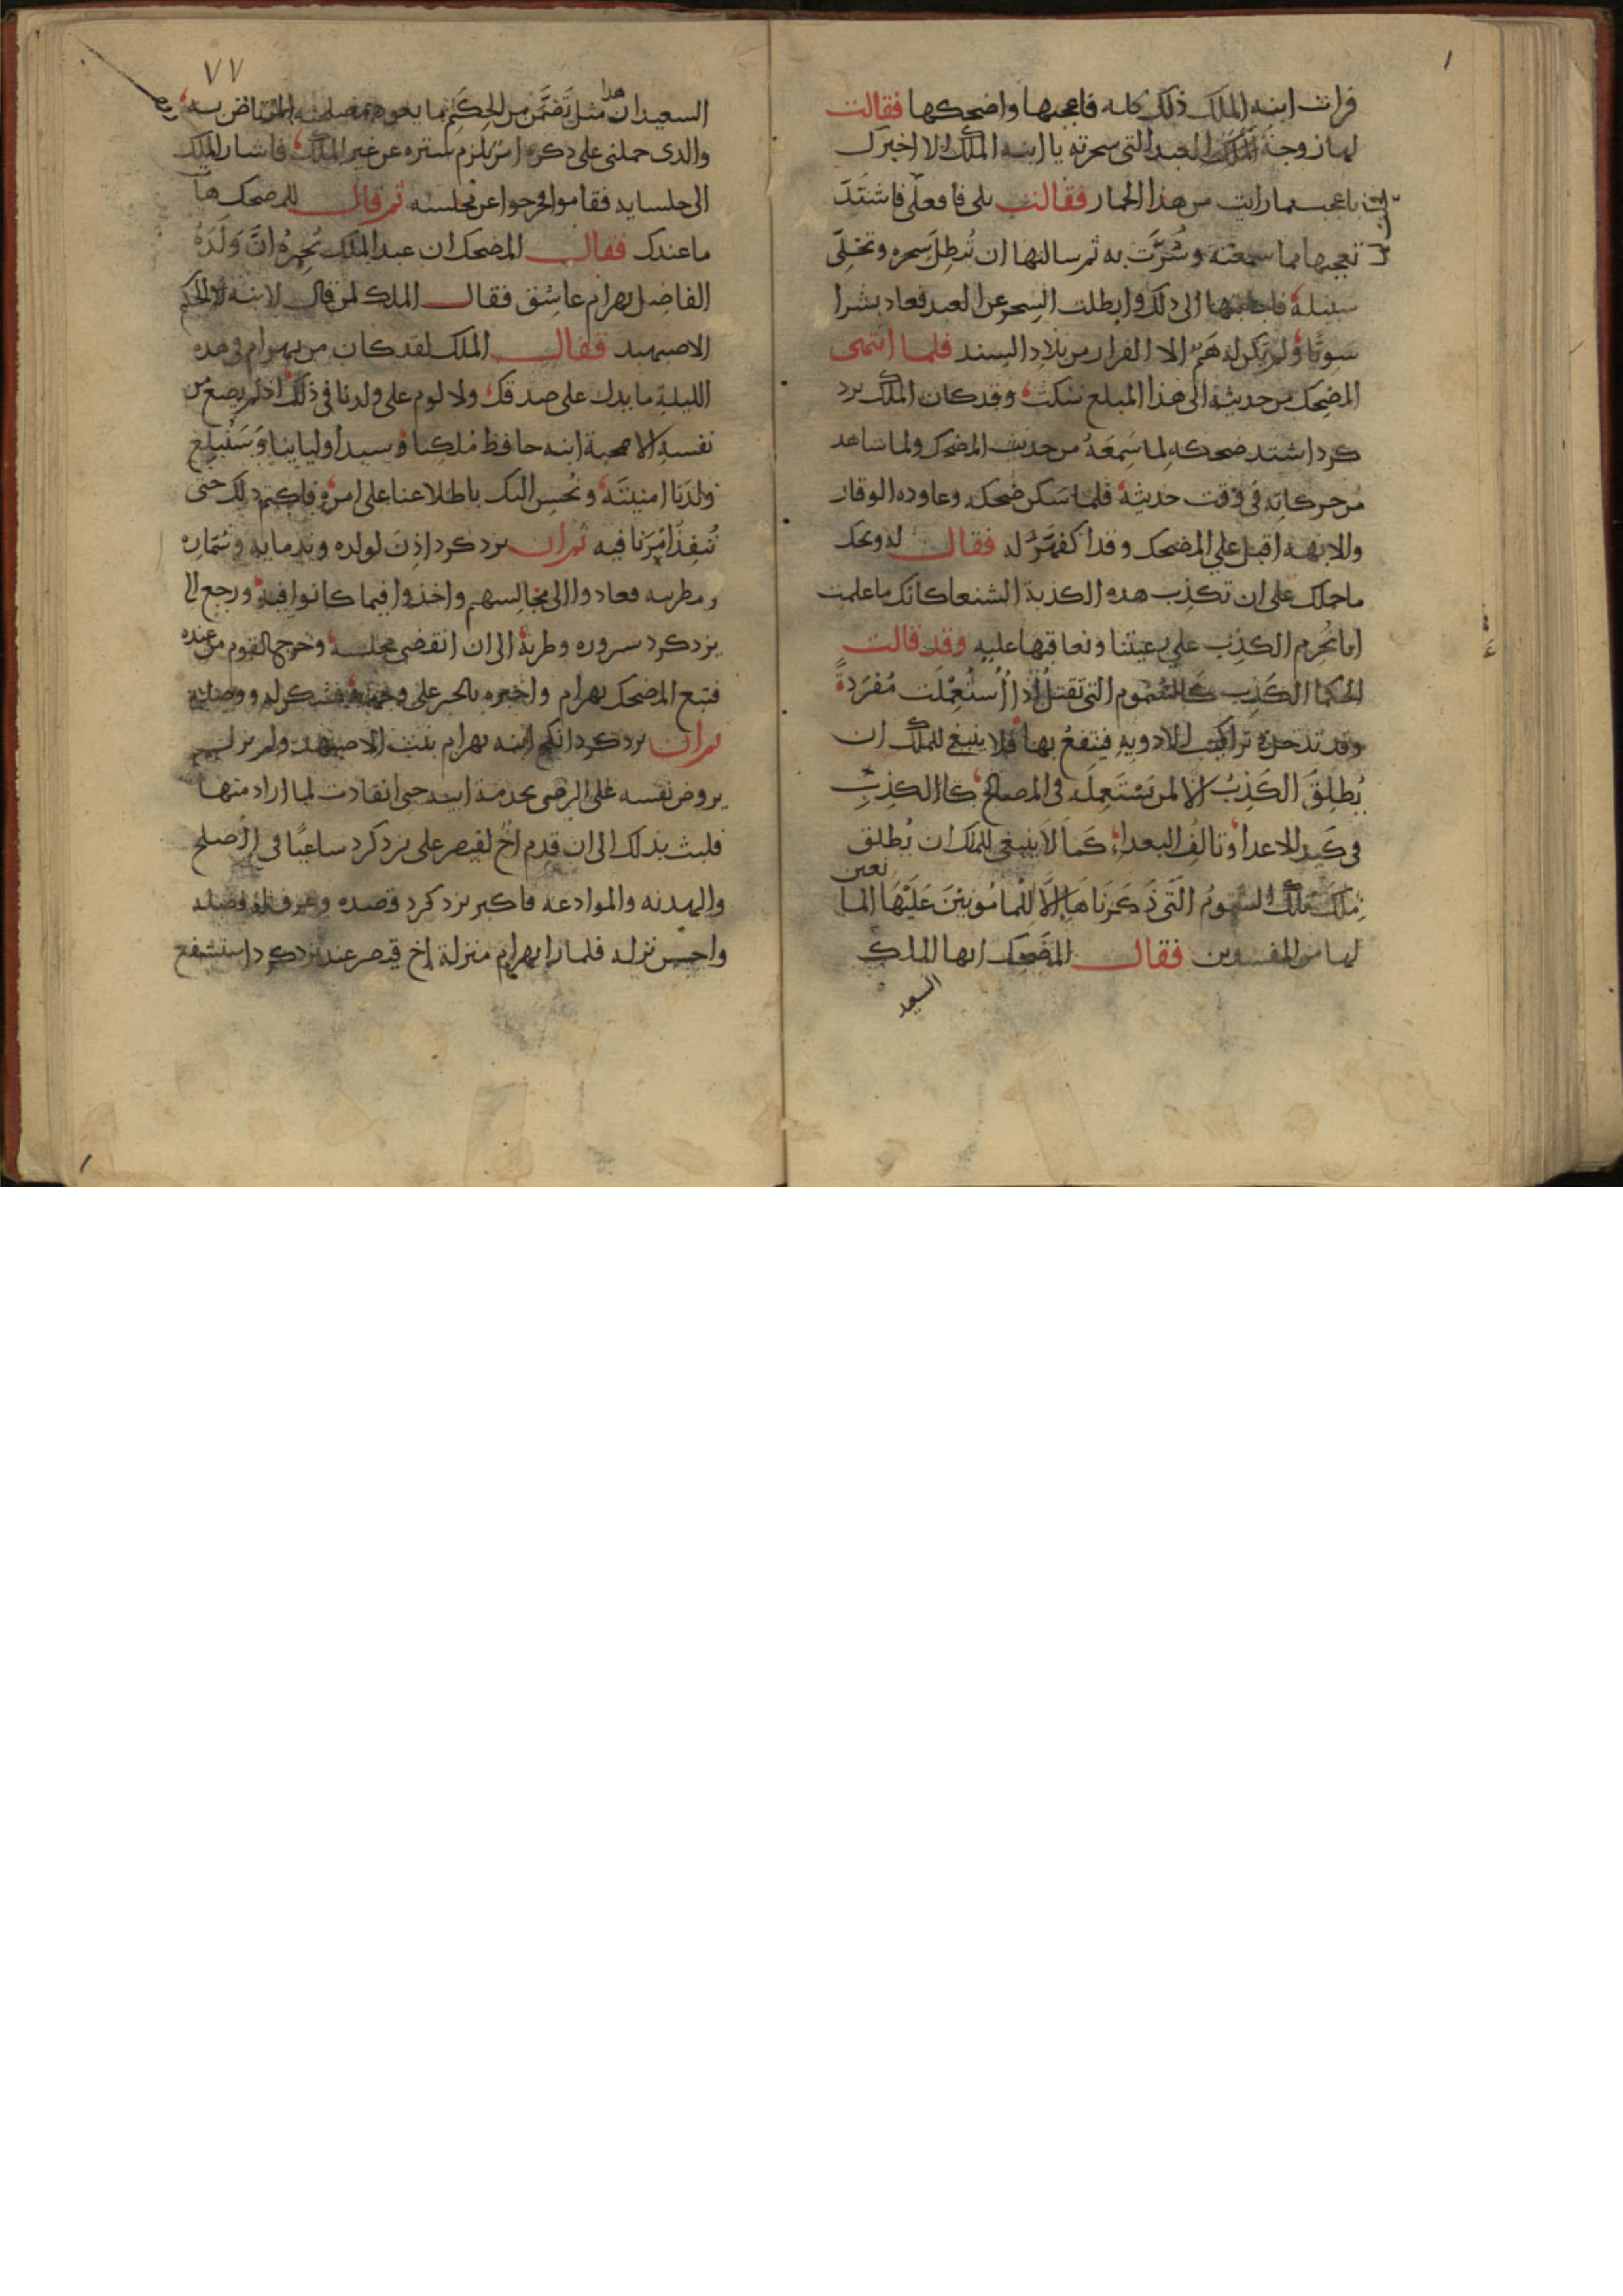 فرات ابنة الملك ذلك كله فاعجبها واضحكها فقالت
لها زوجة الملك العبد التى سحرته يا ابنة الملك الا اخبرك
باعجب مما رايت من هذا الحمار فقالت بلى فافعلى فاشتد
تعجبها مما سمعته وسُرَّت به ثم سالتها ان تُبطِل سِحره وتخلّى
سبيله فاجابتها الى ذلك وابطلت السِحر عن العبد فعاد بشرا
سَويًّا ولم يكن له هَمٌّ الا الفرار من بلاد السند فلما انتهى
المضحك من حديثه الى هذا المبلغ سكت وقد كان الملك يزد
كرد اشتد ضحكه لِما سَمِعَهُ من حديث المضحك ولما شاهد
من حركاته فى وقت حديثه فلما سَكن ضحكه وعاوده الوقار
والابهه اقبل على المضحك وقد اكفهَرَّ له فقال له ويحك
ما حملك على ان تكذِب هذه الكذبة الشنعا كانك ما علمت
انا نُحرِم الكذِب على رعيتنا ونعاقبها عليه وقد قالت
الحُكما الكَذِب كالسُموم التى تقتلُ اذا اُستُعمِلَت مُفرَدةً
وقد تدخل فى تراكيب الادويه فيُنتفعُ بها فلا ينبغى للملك ان
يُطلِقَ الكَذِبُ الا لمن يَستَعمِلَه فى المصالح كالكذِبِ
فى كَيد الاعدا وتالُفِ البعداء كَما لاَ ينبغى للملك ان يُطلِق
مِلك تلك السُمومُ التَّى ذَكَرَناهَا اِلاَّ لِلمامُونِيْنَ عَلَيْهَا الما
نعين
لها من المفسدين فقال المُضحِك ايها الملك
السعيد
٧٧
السعيد ان هذا مثل تَضَمَّن من الحِكَم ما يعود بمصلحة المرتاض به
والذى حملنى على ذكره امرٌ يلزم ستره عن غير الملك فاشار الملك
الى جلسايه فقاموا وخرجوا عن مجلسه ثم قال للمضحك ها
ما عندك فقال المضحك ان عبد الملك يُخبِرهُ انَّ وَلَدَهُ
الفاضِل بهرام عاشِق فقال الملك لمن قال لابنة
الاصبهبد فقال الملك لقد كان من بهرام فى هذه
الليلة ما يدل على صدقك ولا لوم على ولدنا فى ذلك اذ لم يضع من
نفسهِ الا محبة ابنة حافظ مُلكِنا وسيد اوليايِنا وَسَنُبلِغ
ولَدَنا امنِيتَه ونُحسِن اليك باطلاعنا على امره فاكتم ذلك حتى
نُنفِذَ اَمْرَنا فيه ثم ان يزدكرد اذِنَ لولده وندمايه وسُمّاره
ومطربيه فعادوا الى مجالِسهم واخذوا فيما كانوا فيه ورجع الى
يزدكرد سروره وطربه الى ان انقضى مجلسه وخرج القوم من عنده
فتبع المضحك بهرام واخبره بالخبر على وجهه فشكر له ووصله
ثم ان يزدكرد انكح ابنه بهرام بنت الاصبهبد ولم يزل بهرام
يروض نفسه على الرضى بخدمة ابيه حتى انقادت لما اراد منها
فلبث بذلك الى ان قدِم اخٌ لقيصر على يزدكرد ساعيًا فى الصلح
والهدنه والموادعه فاكبر يزدكرد قصده وعرف له فضله
واحسن نزله فلما راى بهرام منزلة اخ قيصر عند يزدكرد استشفع